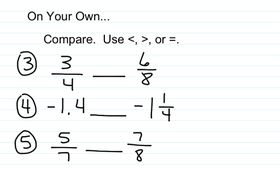 On Your Own...
Compare. Use <, >, or =.
③ 3/4 ___ 6/8
④ -1.4 ___ -1 1/4
⑤ 5/7 ___ 7/8